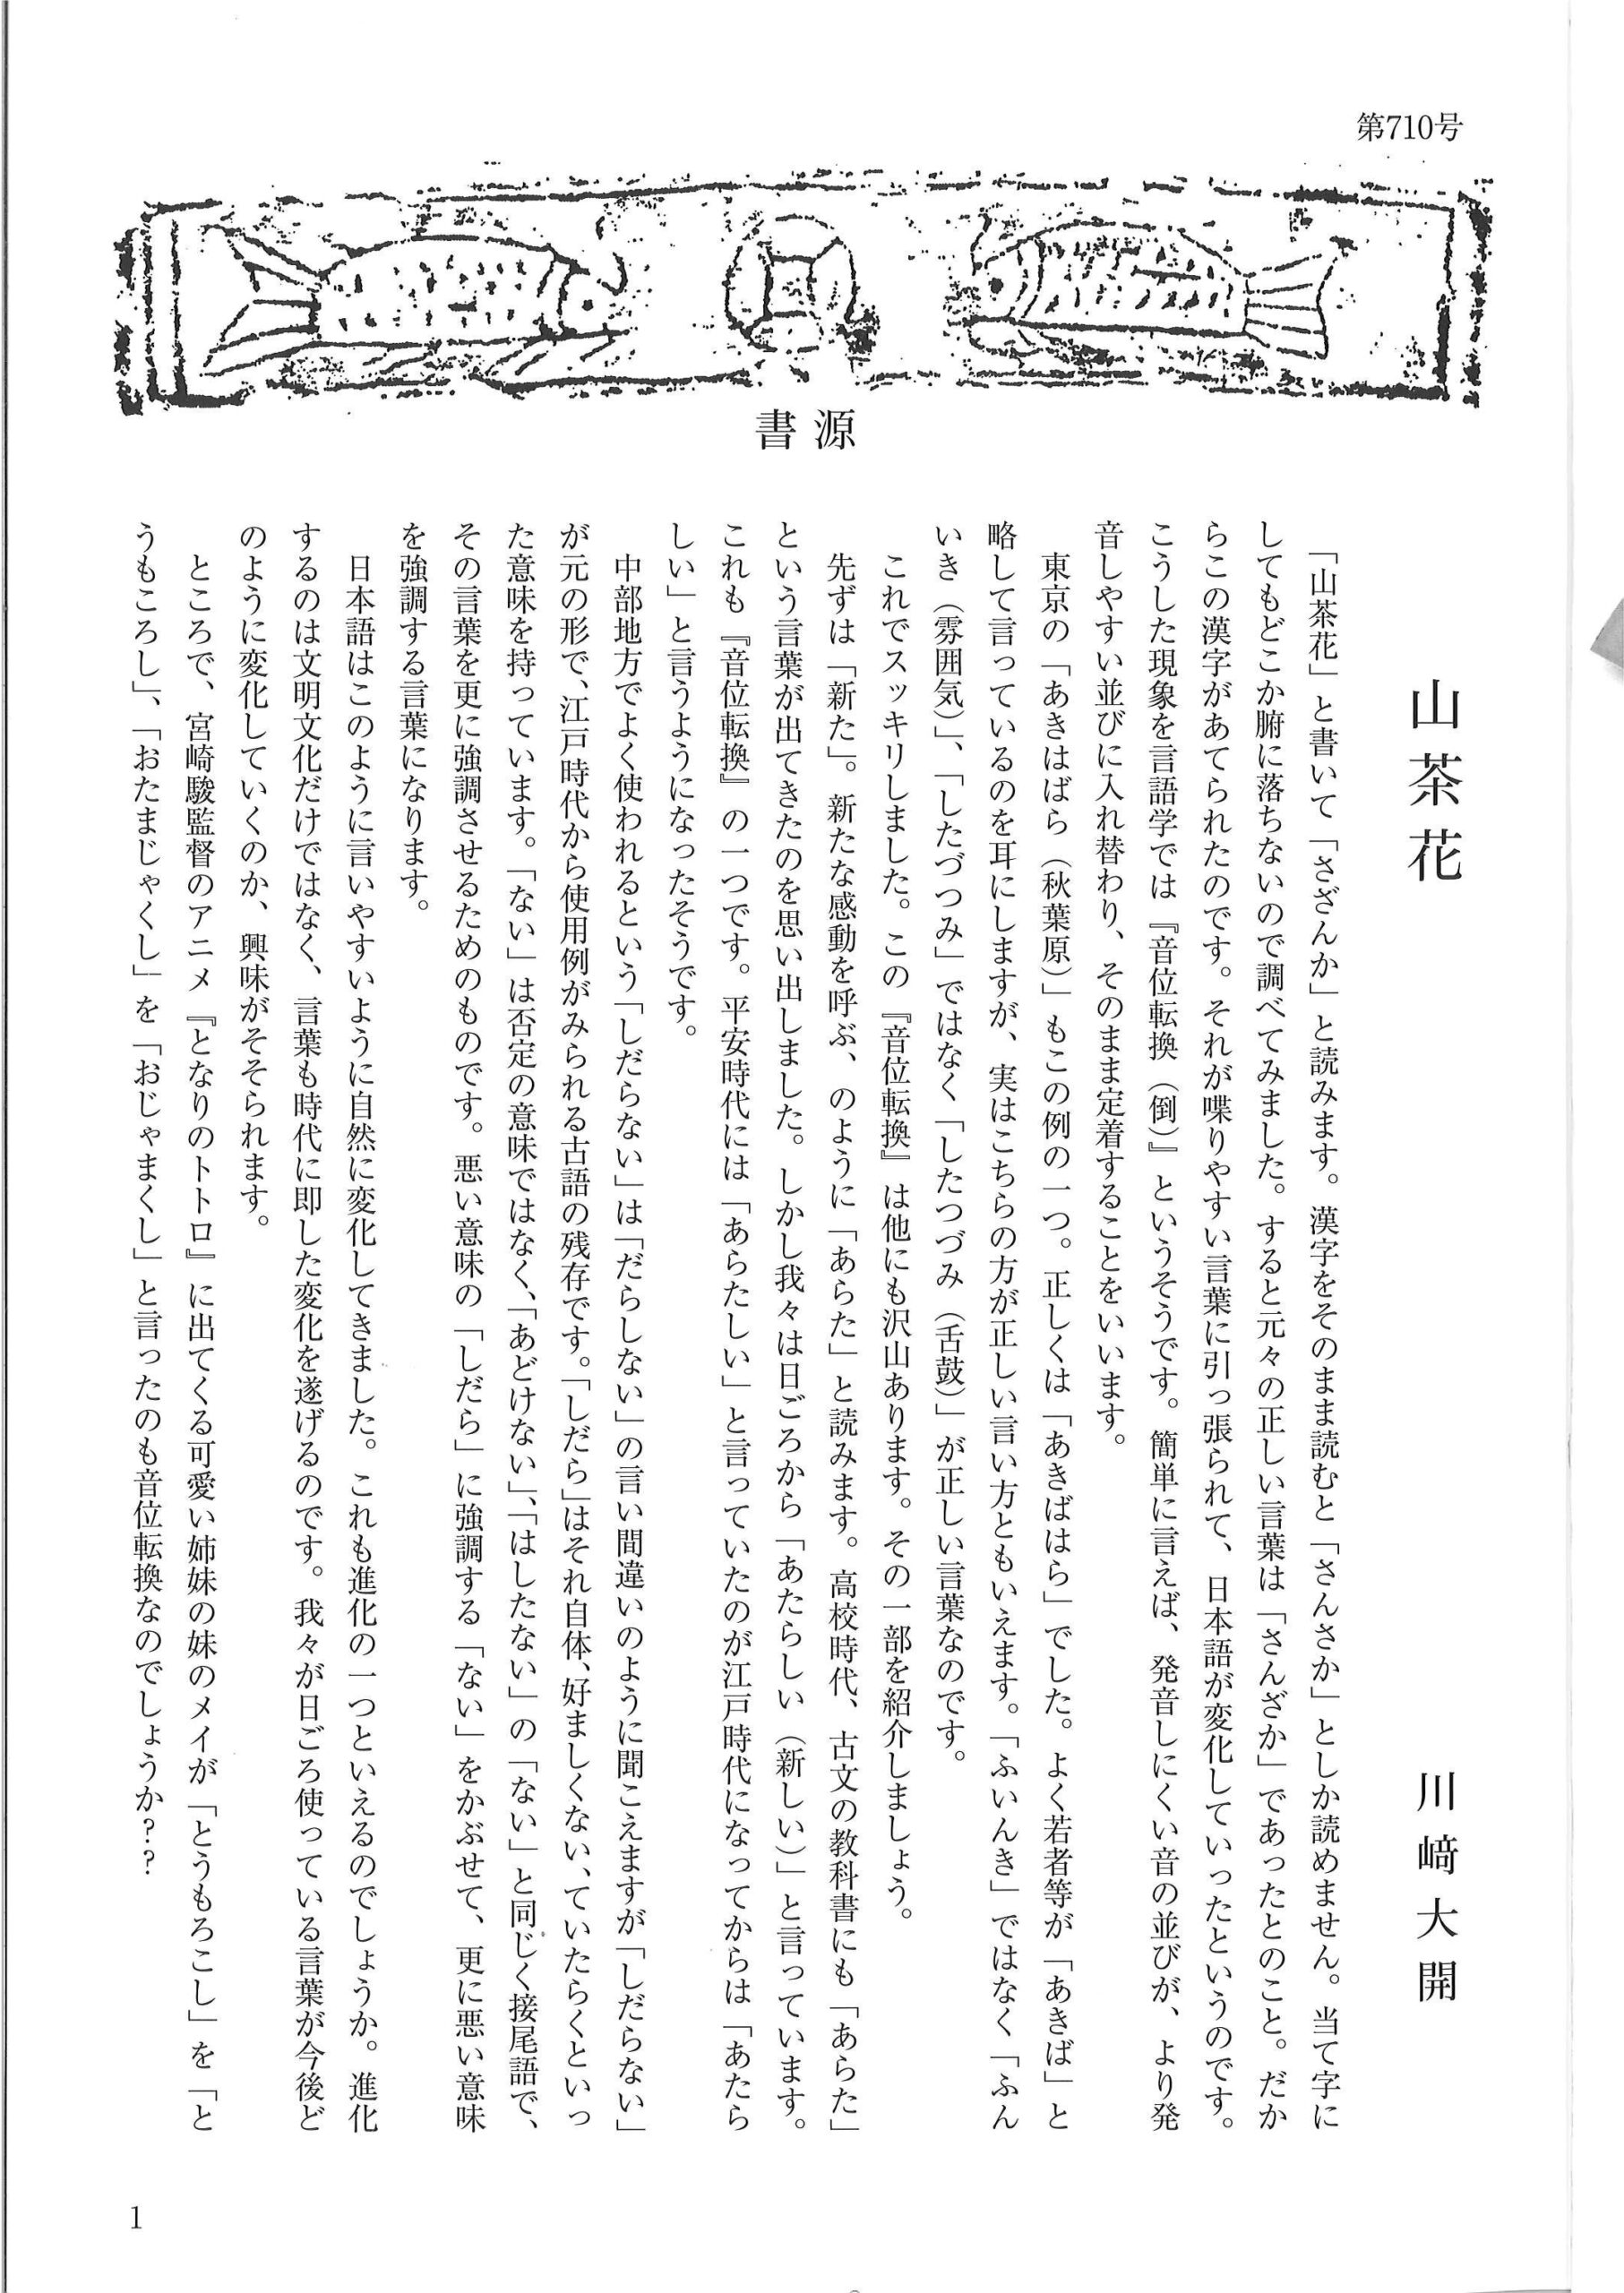 第710号
書源
山茶花
川﨑大開
「山茶花」と書いて「さざんか」と読みます。漢字をそのまま読むと「さんさか」としか読めません。当て字に
してもどこか腑に落ちないので調べてみました。すると元々の正しい言葉は「さんざか」であったとのこと。だか
らこの漢字があてられたのです。それが喋りやすい言葉に引っ張られて、日本語が変化していったというのです。
こうした現象を言語学では『音位転換（倒）』というそうです。簡単に言えば、発音しにくい音の並びが、より発
音しやすい並びに入れ替わり、そのまま定着することをいいます。
東京の「あきはばら（秋葉原）」もこの例の一つ。正しくは「あきばはら」でした。よく若者等が「あきば」と
略して言っているのを耳にしますが、実はこちらの方が正しい言い方ともいえます。「ふいんき」ではなく「ふん
いき（雰囲気）」、「したづつみ」ではなく「したつづみ（舌鼓）」が正しい言葉なのです。
これでスッキリしました。この『音位転換』は他にも沢山あります。その一部を紹介しましょう。
先ずは「新た」。新たな感動を呼ぶ、のように「あらた」と読みます。高校時代、古文の教科書にも「あらた」
という言葉が出てきたのを思い出しました。しかし我々は日ごろから「あたらしい（新しい）」と言っています。
これも『音位転換』の一つです。平安時代には「あらたしい」と言っていたのが江戸時代になってからは「あたら
しい」と言うようになったそうです。
中部地方でよく使われるという「しだらない」は「だらしない」の言い間違いのように聞こえますが「しだらない」
が元の形で、江戸時代から使用例がみられる古語の残存です。「しだら」はそれ自体、好ましくない、ていたらくといっ
た意味を持っています。「ない」は否定の意味ではなく、「あどけない」、「はしたない」の「ない」と同じく接尾語で、
その言葉を更に強調させるためのものです。悪い意味の「しだら」に強調する「ない」をかぶせて、更に悪い意味
を強調する言葉になります。
日本語はこのように言いやすいように自然に変化してきました。これも進化の一つといえるのでしょうか。進化
するのは文明文化だけではなく、言葉も時代に即した変化を遂げるのです。我々が日ごろ使っている言葉が今後ど
のように変化していくのか、興味がそそられます。
ところで、宮崎駿監督のアニメ『となりのトトロ』に出てくる可愛い姉妹の妹のメイが「とうもろこし」を「と
うもころし」、「おたまじゃくし」を「おじゃまくし」と言ったのも音位転換なのでしょうか？？
1